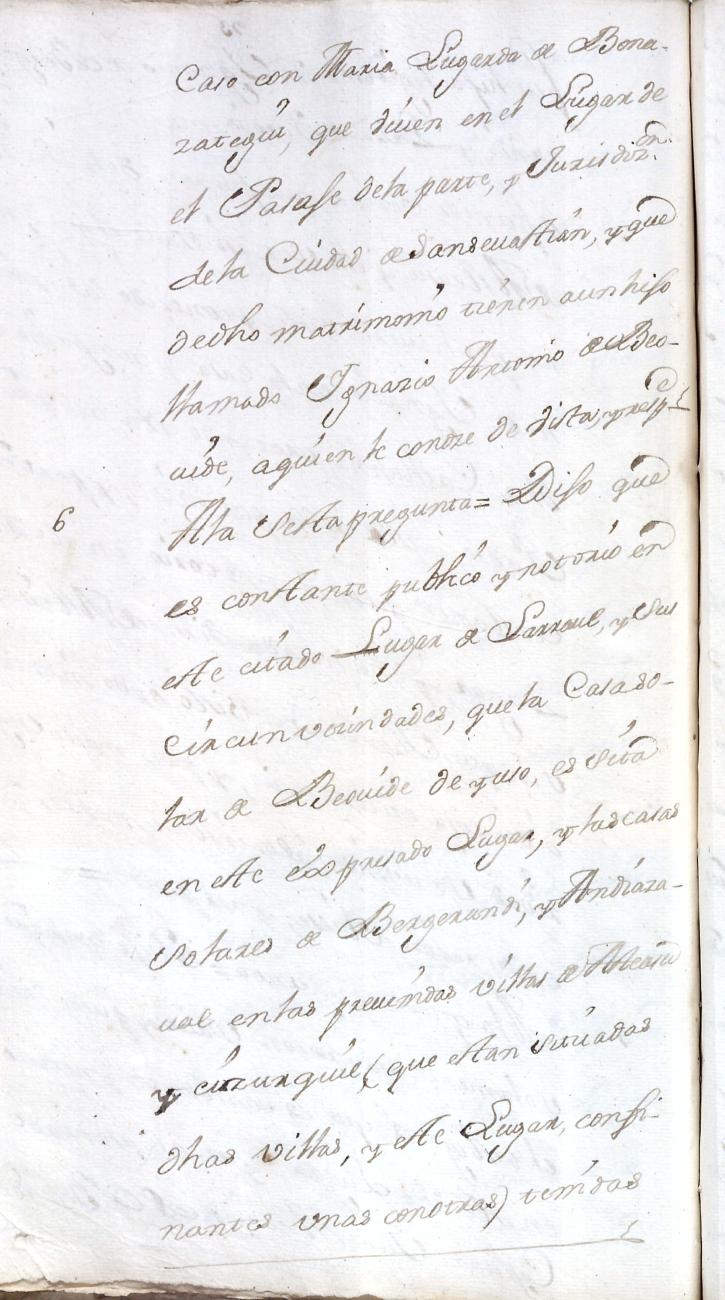 Caso con Maria Lugarda de Bona-
rategui, que viven en el Lugar de
el Pasase dela parte, y Jurisdiz.on
dela Ciudad de Sansevastian, y que
dedho matrimonio tienen a un hijo
llamado Ygnazio Antonio de Beo-
uide, aquien le conoze de vista, y resp.de
6 Ala sesta pregunta = Dijo que
es constante publico y notorio en
este citado Lugar de Larraul, y sus
circunvecindades, que la Casa so-
lar de Beouide de yuso, es sita
en este expresado Lugar, y las casas
solares de Bergerandi, y Andiaza-
ual en las prevenidas villas de Asteasu
y cizurquil (que estan situadas
dhas villas, y este Lugar, confi-
nantes unas con otras) tenidas